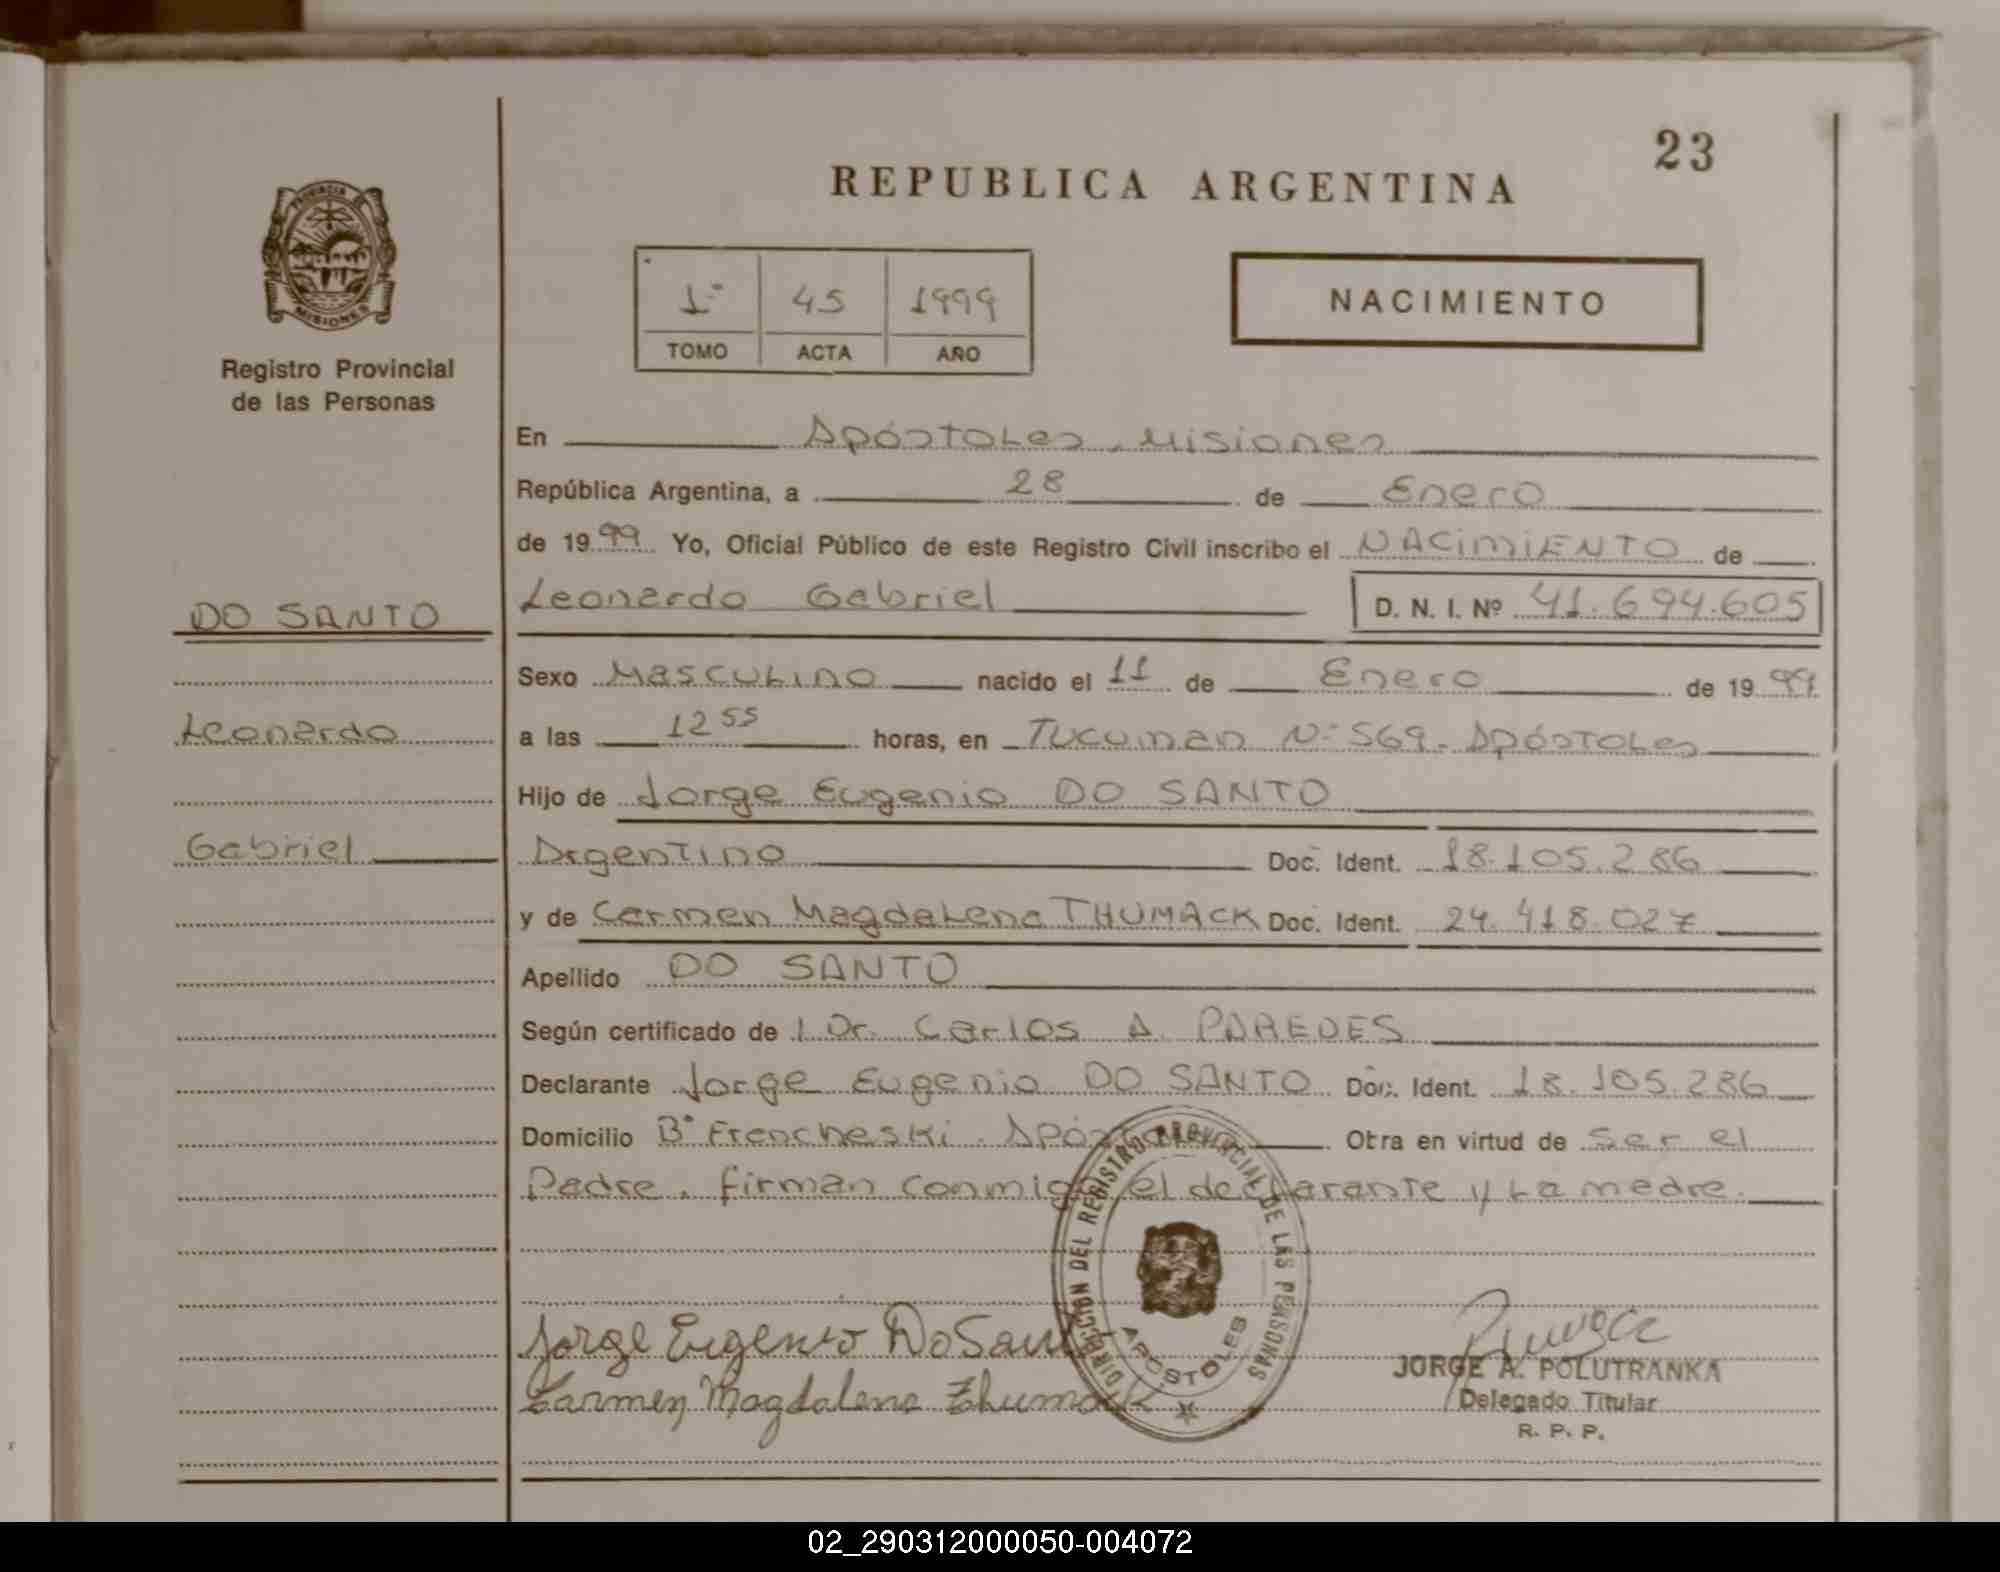 23
REPUBLICA ARGENTINA
PROVINCIA DE
MISIONES
Registro Provincial
de las Personas
1º 45 1999
TOMO ACTA AÑO
NACIMIENTO
En Apóstoles, Misiones
República Argentina, a 28 de Enero
de 1999 Yo, Oficial Público de este Registro Civil inscribo el NACimiENTO de
DO SANTO
Leonardo Gabriel D. N. I. Nº 41.694.605
Sexo Masculino nacido el 11 de Enero de 1999
Leonardo
a las 12 55 horas, en Tucuman Nº 569. Apóstoles
Hijo de Jorge Eugenio DO SANTO
Gabriel
Argentino Doc. Ident. 18.105.286
y de Carmen Magdalena THUMACK Doc. Ident. 24.418.027
Apellido DO SANTO
Según certificado de l Dr. Carlos A. PAREDES
Declarante Jorge Eugenio DO SANTO Doc. Ident. 18.105.286
Domicilio Bº Francheski. Apóstoles Otra en virtud de ser el
Padre. firman conmigo el declarante y la madre.
DIRECCION DEL REGISTRO PROVINCIAL DE LAS PERSONAS
APOSTOLES
Jorge Eugenio Do Santo
Carmen Magdalena Thumack
JORGE A. POLUTRANKA
Delegado Titular
R. P. P.
02_290312000050-004072